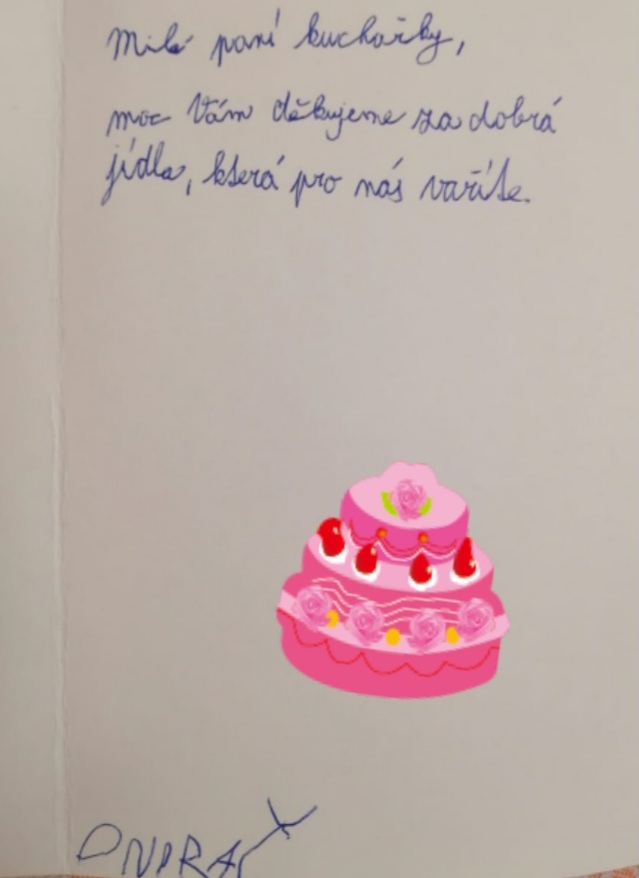 Milé paní kuchařky,
moc Vám děkujeme za dobrá
jídla, která pro nás vaříte.